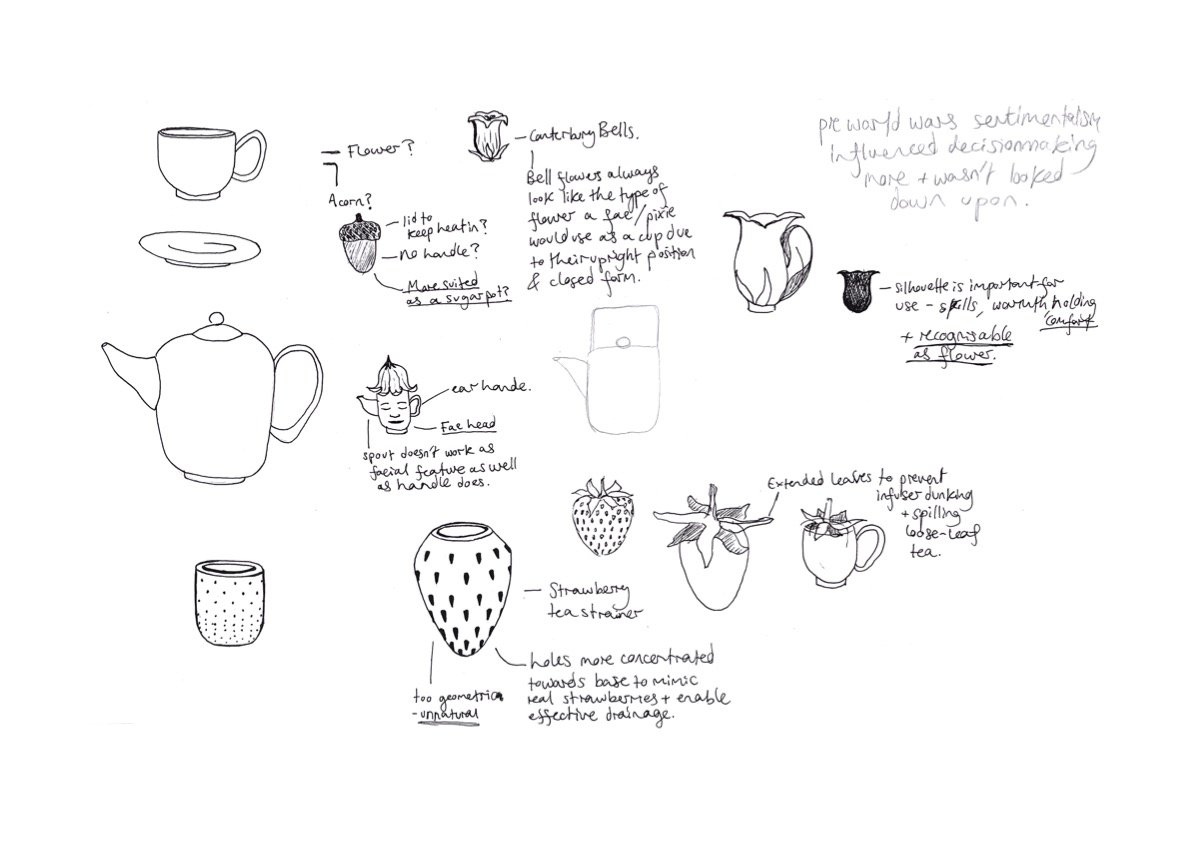 Flower?
Acorn?
lid to
keep heat in?
no handle?
More suited
as a sugarpot?
Canterbury Bells.
Bell flowers always
look like the type of
flower a fae/pixie
would use as a cup due
to their upright position
& closed form.
pre world wars sentimentalism
influenced decisionmaking
more + wasn't looked
down upon.
silhouette is important for
use - spills, warmth holding
'comfort'
+ recognisable
as flower.
ear hande.
Fae head
spout doesn't work as
facial feature as well
as handle does.
Extended leaves to prevent
infuser dunking
+ spilling
loose-leaf
tea.
Strawberry
tea strainer
holes more concentrated
towards base to mimic
real strawberries + enable
effective drainage.
too geometric
- unnatural